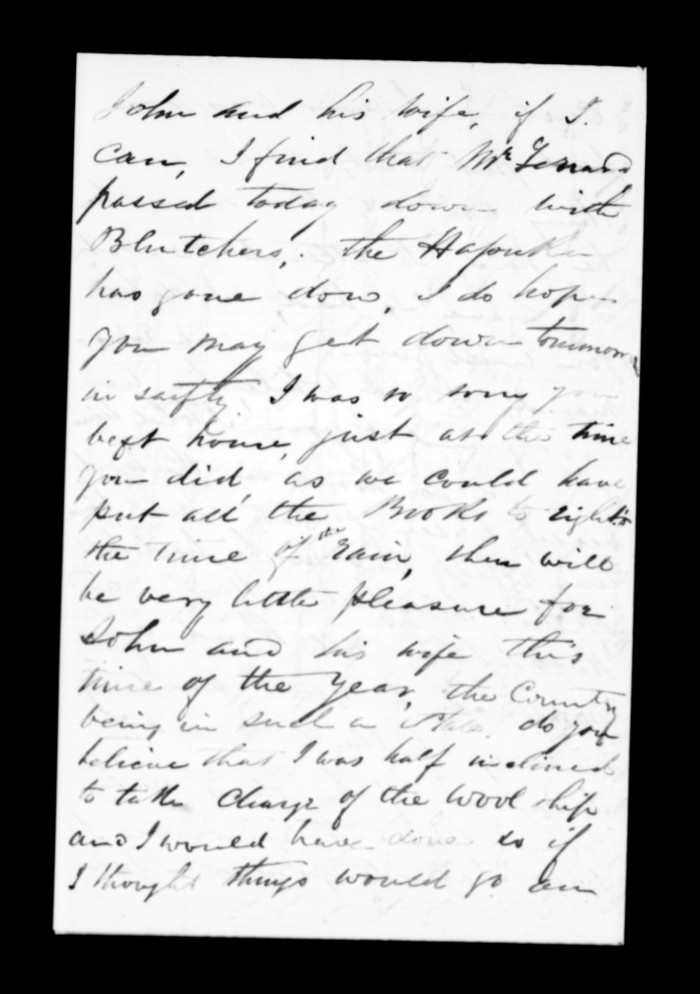 John and his wife, if I.
can, I find that Mr
passed today down with
Blutchers, the
has gone dow, I do hope
you may get down tommorrow
in saifty I was so sorry you
left home, just at the time
you did, as we could have
put all the Books to rights
the time of the Rain, ther will
be very little pleasure for
John and his wife this
time of the Year, the Country
being in such a state. do you
believe that I was half inclined
to take charge of the wool ship
and I would have done so if
I thought things would go an